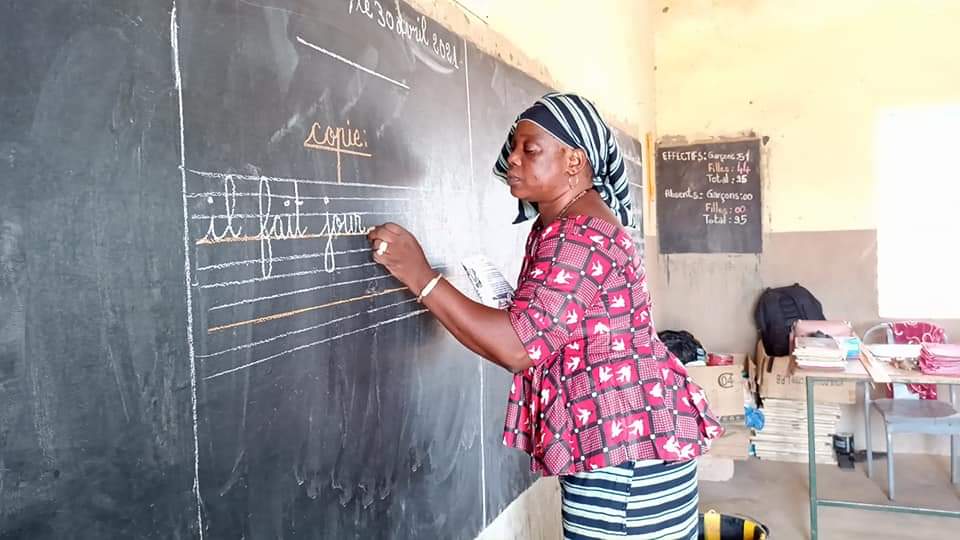 le 30 avril 2021.
copie:
il fait jour
EFFECTIFS: Garçons: 51
Filles: 44
Total: 95
Absents: Garçons: 00
Filles: 00
Total: 95